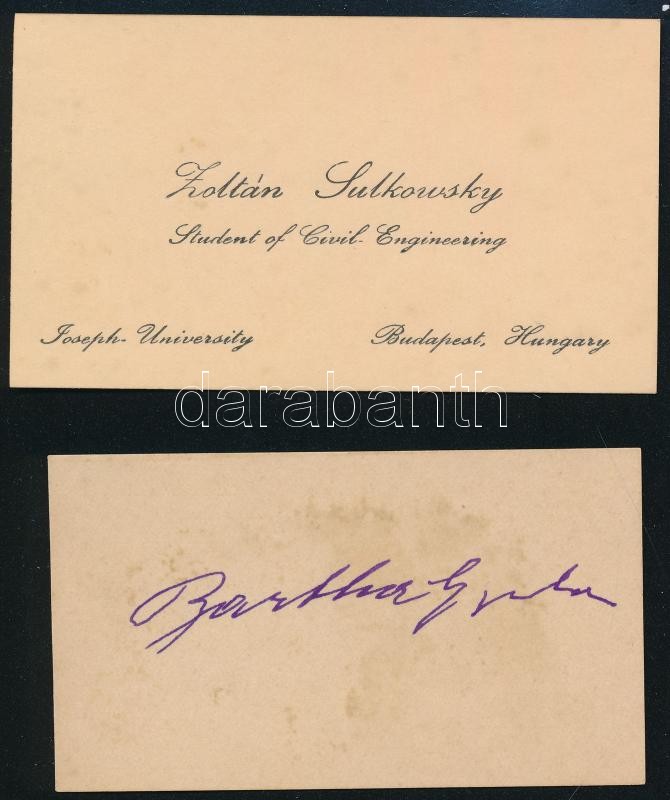 Zoltán Sulkowsky
Student of Civil-Engineering
Joseph-University Budapest, Hungary
darabanth
Bartha Gyula